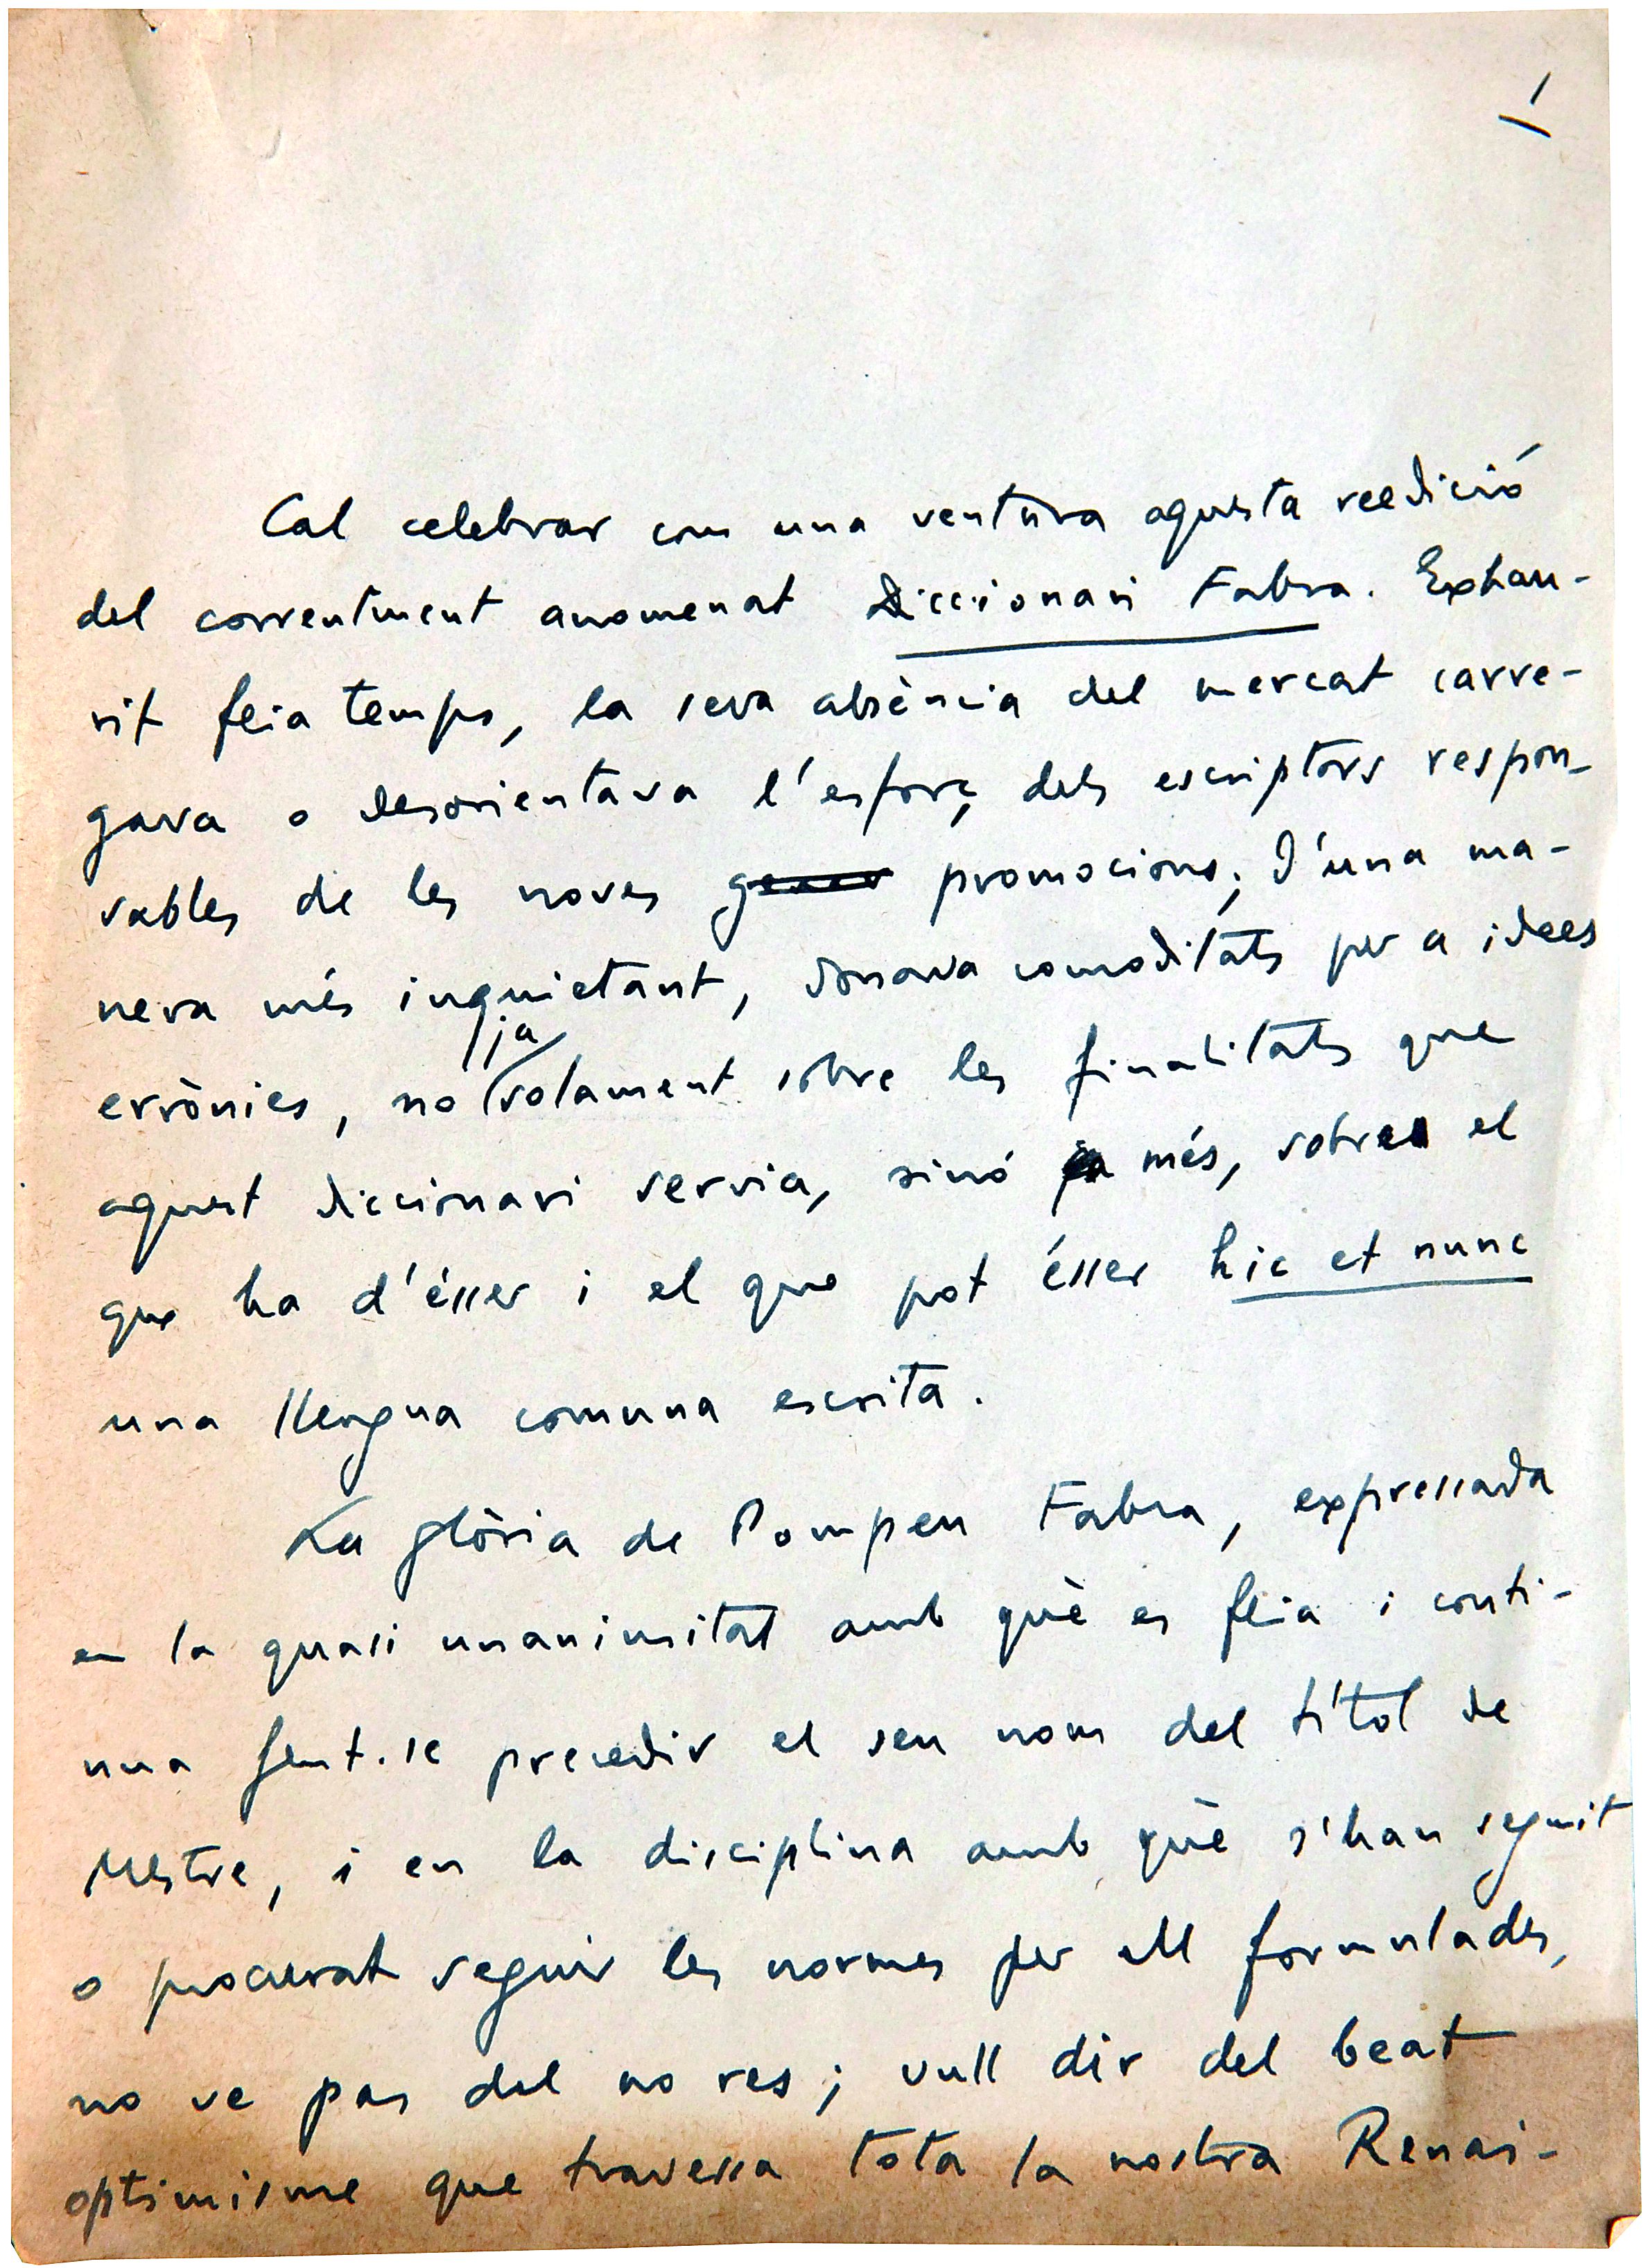 1
Cal celebrar com una ventura aquesta reedició
del correntment anomenat Diccionari Fabra. Exhau-
rit feia temps, la seva absència del mercat carre-
gava o desorientava l'esforç dels escriptors respon-
sables de les noves gener promocions; d'una ma-
nera més inquietant, donava comoditats per a idees
errònies, no ja solament sobre les finalitats que
aquest diccionari servia, sinó més, sobre el
que ha d'ésser i el que pot ésser hic et nunc
una llengua comuna escrita.
La glòria de Pompeu Fabra, expressada
en la quasi unanimitat amb què es feia i conti-
nua fent-se precedir el seu nom del títol de
Mestre, i en la disciplina amb què s'han seguit
o procurat seguir les normes per ell formulades,
no ve pas del no res; vull dir del beat
optimisme que travessa tota la nostra Renai-